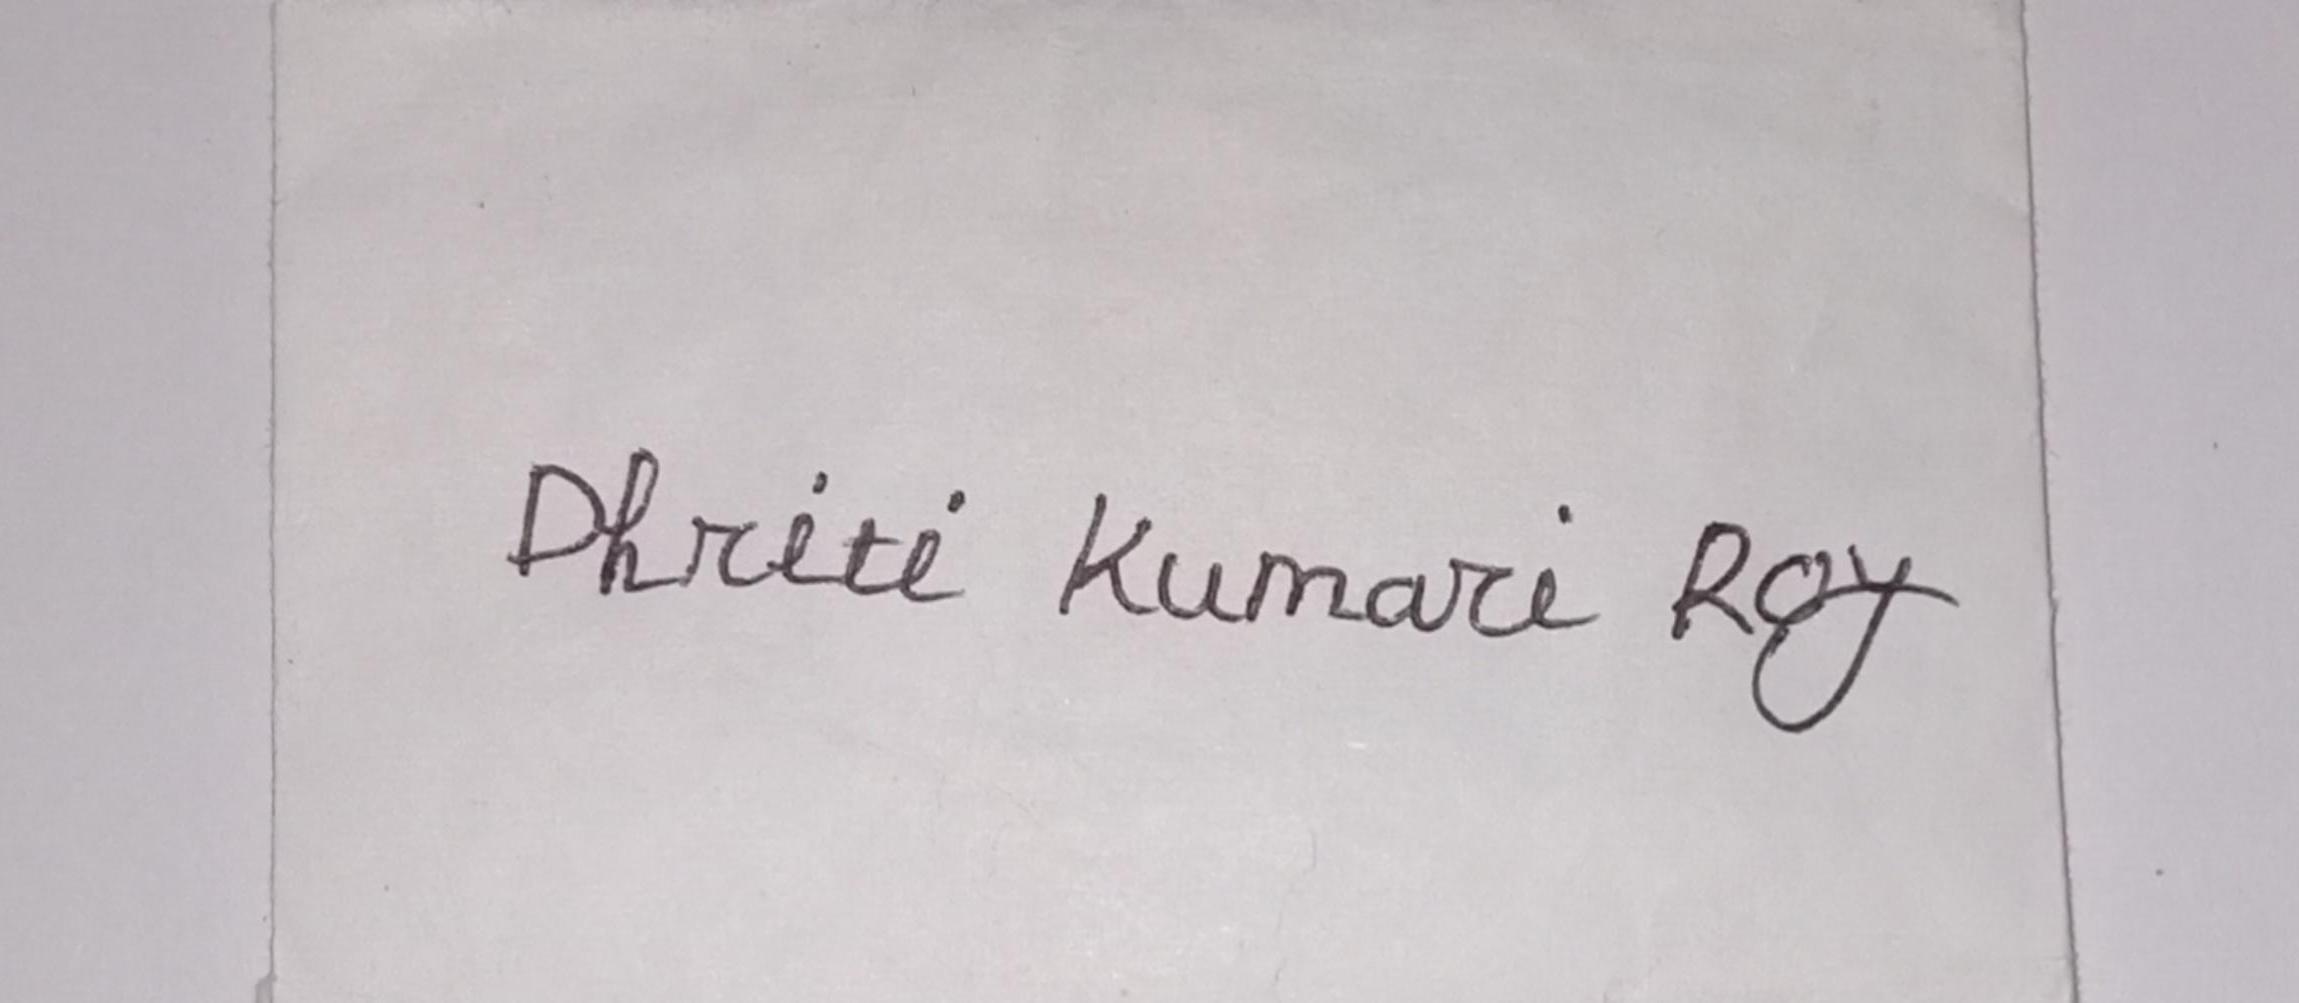 Dhriti Kumari Roy